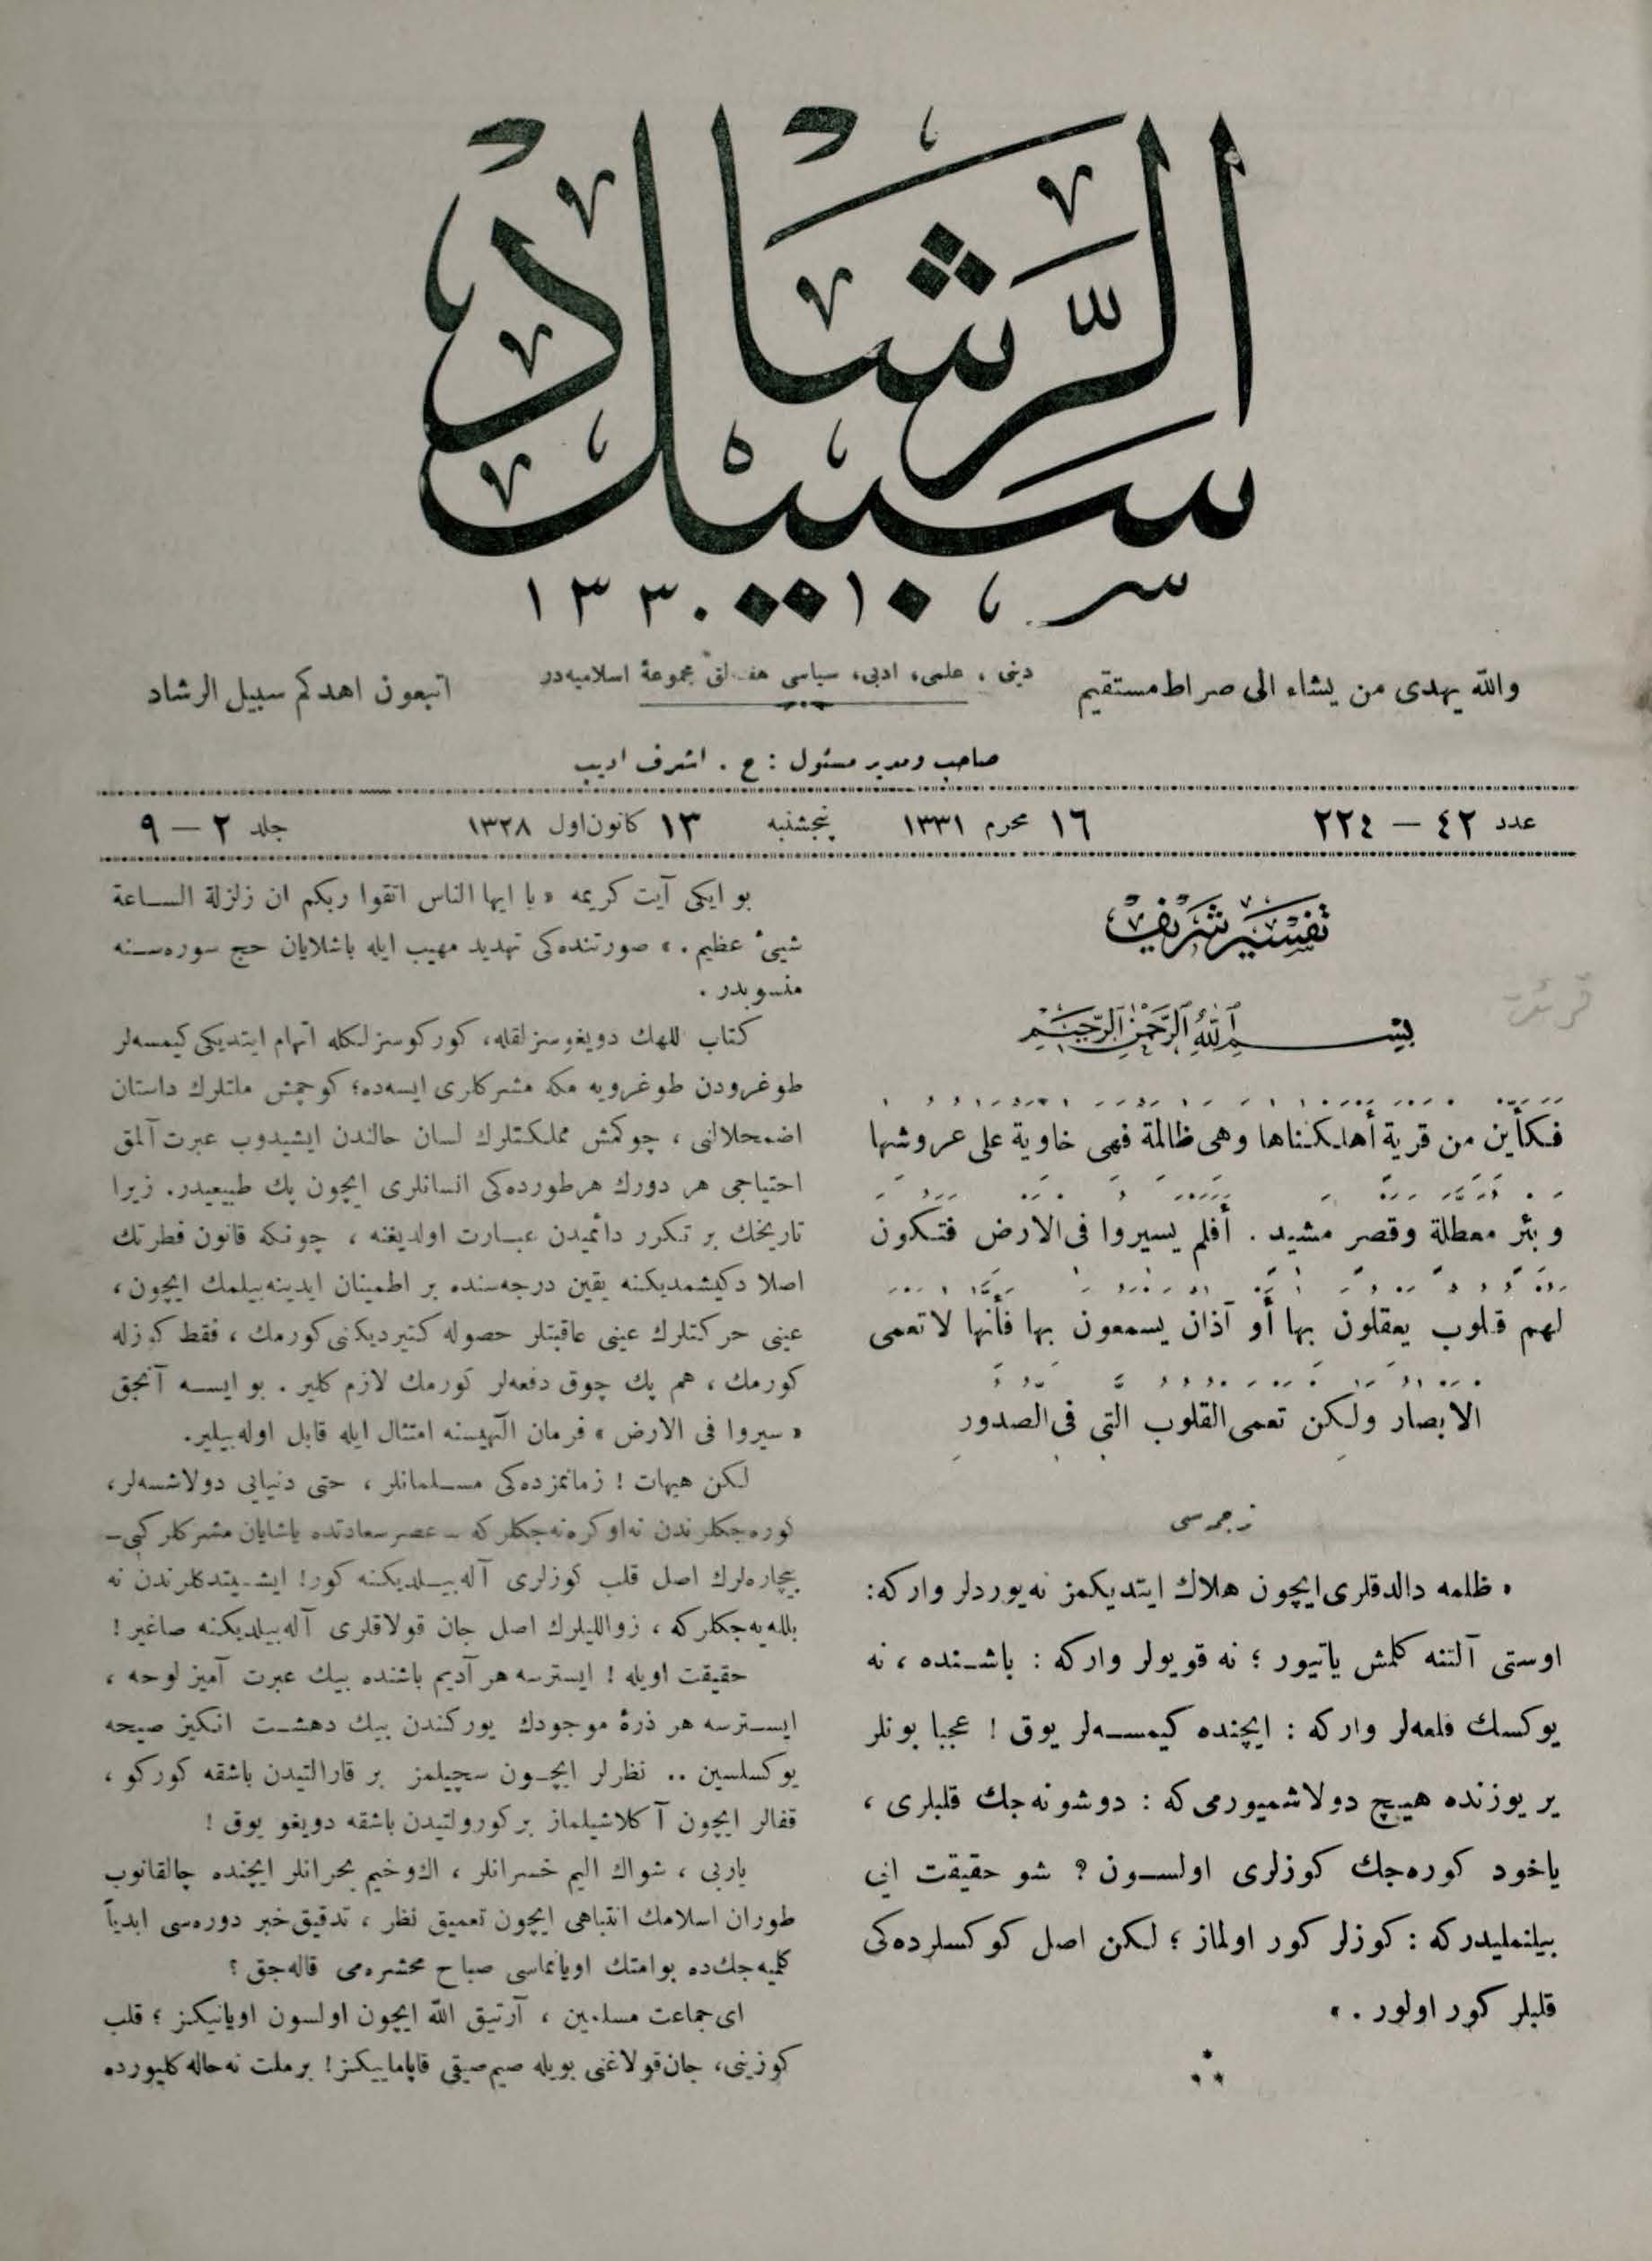 سبيل الرشاد
١٣٣٠
والله يهدى من يشاء الى صراط مستقيم
دينى ، علمى ، ادبى ، سياسى هفته‌لق مجموعهٔ اسلاميه‌در
اتبعون اهدكم سبيل الرشاد
صاحب ومدير مسئول : ح . اشرف اديب
عدد ٤٢ — ٢٢٤
١٦ محرم ١٣٣١
پنجشنبه
١٣ كانون اول ١٣٢٨
جلد ٢ — ٩
تفسير شريف
بسم الله الرحمن الرحيم
فكأين من قرية أهلكناها وهى ظالمة فهى خاوية على عروشها
وبئر معطلة وقصر مشيد . أفلم يسيروا فى الارض فتكون
لهم قلوب يعقلون بها أو آذان يسمعون بها فأنها لا تعمى
الابصار ولكن تعمى القلوب التى فى الصدور
ترجمه‌سى
« ظلمه دالدقلرى ايچون هلاك ايتديكمز نه يوردلر واركه :
اوستى آلتنه كلمش ياتيور ؛ نه قويولر واركه : باشنده ، نه
يوكسك قلعه‌لر واركه : ايچنده كيمسه‌لر يوق ! عجبا بونلر
ير يوزنده هيچ دولاشميورمى كه : دوشونه‌جك قلبلرى ،
ياخود كوره‌جك كوزلرى اولسون ؟ شو حقيقت ايى
بيلنمليدركه : كوزلر كور اولماز ؛ لكن اصل كوكسلرده‌كى
قلبلر كور اولور . »
بو ايكى آيت كريمه « يا ايها الناس اتقوا ربكم ان زلزلة الساعة
شيئ عظيم . » صورتنده‌كى تهديد مهيب ايله باشلايان حج سوره‌سنه
منسوبدر .
كتاب اللهك دويغوسزلقله ، كوركوسزلكله اتهام ايتديكى كيمسه‌لر
طوغرودن طوغرويه مكه مشركلرى ايسه‌ده ؛ كوچمش ملتلرك داستان
اضمحلالنى ، چوكمش مملكتلرك لسان حالندن ايشيدوب عبرت آلمق
احتياجى هر دورك هر طورده‌كى انسانلرى ايچون پك طبيعيدر. زيرا
تاريخك بر تكرر دائميدن عبارت اولديغنه ، چونكه قانون فطرتك
اصلا دكيشمديكنه يقين درجه‌سنده بر اطمينان ايدينه‌بيلمك ايچون ،
عينى حركتلرك عينى عاقبتلر حصوله كتيرديكنى كورمك ، فقط كوزله
كورمك ، هم پك چوق دفعه‌لر كورمك لازم كلير . بو ايسه آنجق
« سيروا فى الارض » فرمان الٓهيسنه امتثال ايله قابل اوله‌بيلير.
لكن هيهات ! زمانمزده‌كى مسلمانلر ، حتى دنيايى دولاشسه‌لر ،
كوره‌جكلرندن نه اوكره‌نه‌جكلركه – عصر سعادتده ياشايان مشركلر كبى –
بيچاره‌لرك اصل قلب كوزلرى آله‌بيلديكنه كور ! ايشيتدكلرندن نه
بلله‌يه‌جكلركه ، زوالليلرك اصل جان قولاقلرى آله‌بيلديكنه صاغير !
حقيقت اويله ! ايسترسه هر آديم باشنده بيك عبرت آميز لوحه ،
ايسترسه هر ذرهٔ موجودك يوركندن بيك دهشت انكيز صيحه
يوكسلسين .. نظرلر ايچون سچيلمز بر قارالتيدن باشقه كوركو ،
قفالر ايچون آكلاشيلماز بر كورولتيدن باشقه دويغو يوق !
ياربى ، شو اك اليم خسرانلر ، اك وخيم بحرانلر ايچنده چالقانوب
طوران اسلامك انتباهى ايچون تعميق نظر ، تدقيق خبر دوره‌سى ابدياً
كلميه‌جك‌ده بو امتك اويانماسى صباح محشره‌مى قاله‌جق ؟
اى جماعت مسلمين ، آرتيق الله ايچون اولسون اويانيكز ؛ قلب
كوزينى ، جان قولاغنى بويله صيم صيقى قاپاماييكز ! بر ملت نه حاله كليورده